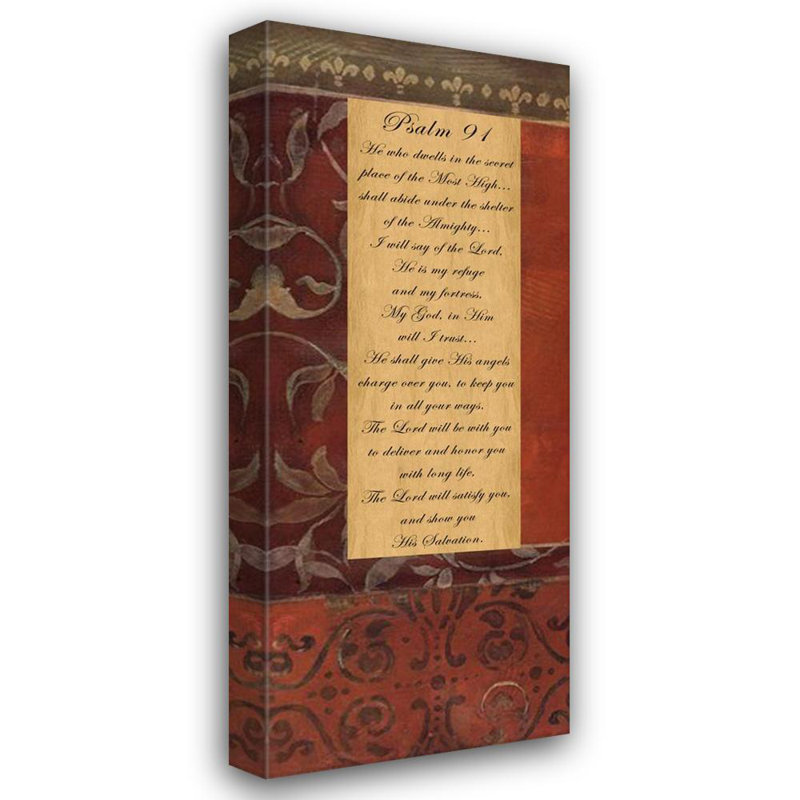 Psalm 91
He who dwells in the secret
place of the Most High...
shall abide under the shelter
of the Almighty...
I will say of the Lord,
He is my refuge
and my fortress,
My God, in Him
will I trust...
He shall give His angels
charge over you, to keep you
in all your ways.
The Lord will be with you
to deliver and honor you
with long life,
The Lord will satisfy you,
and show you
His Salvation.